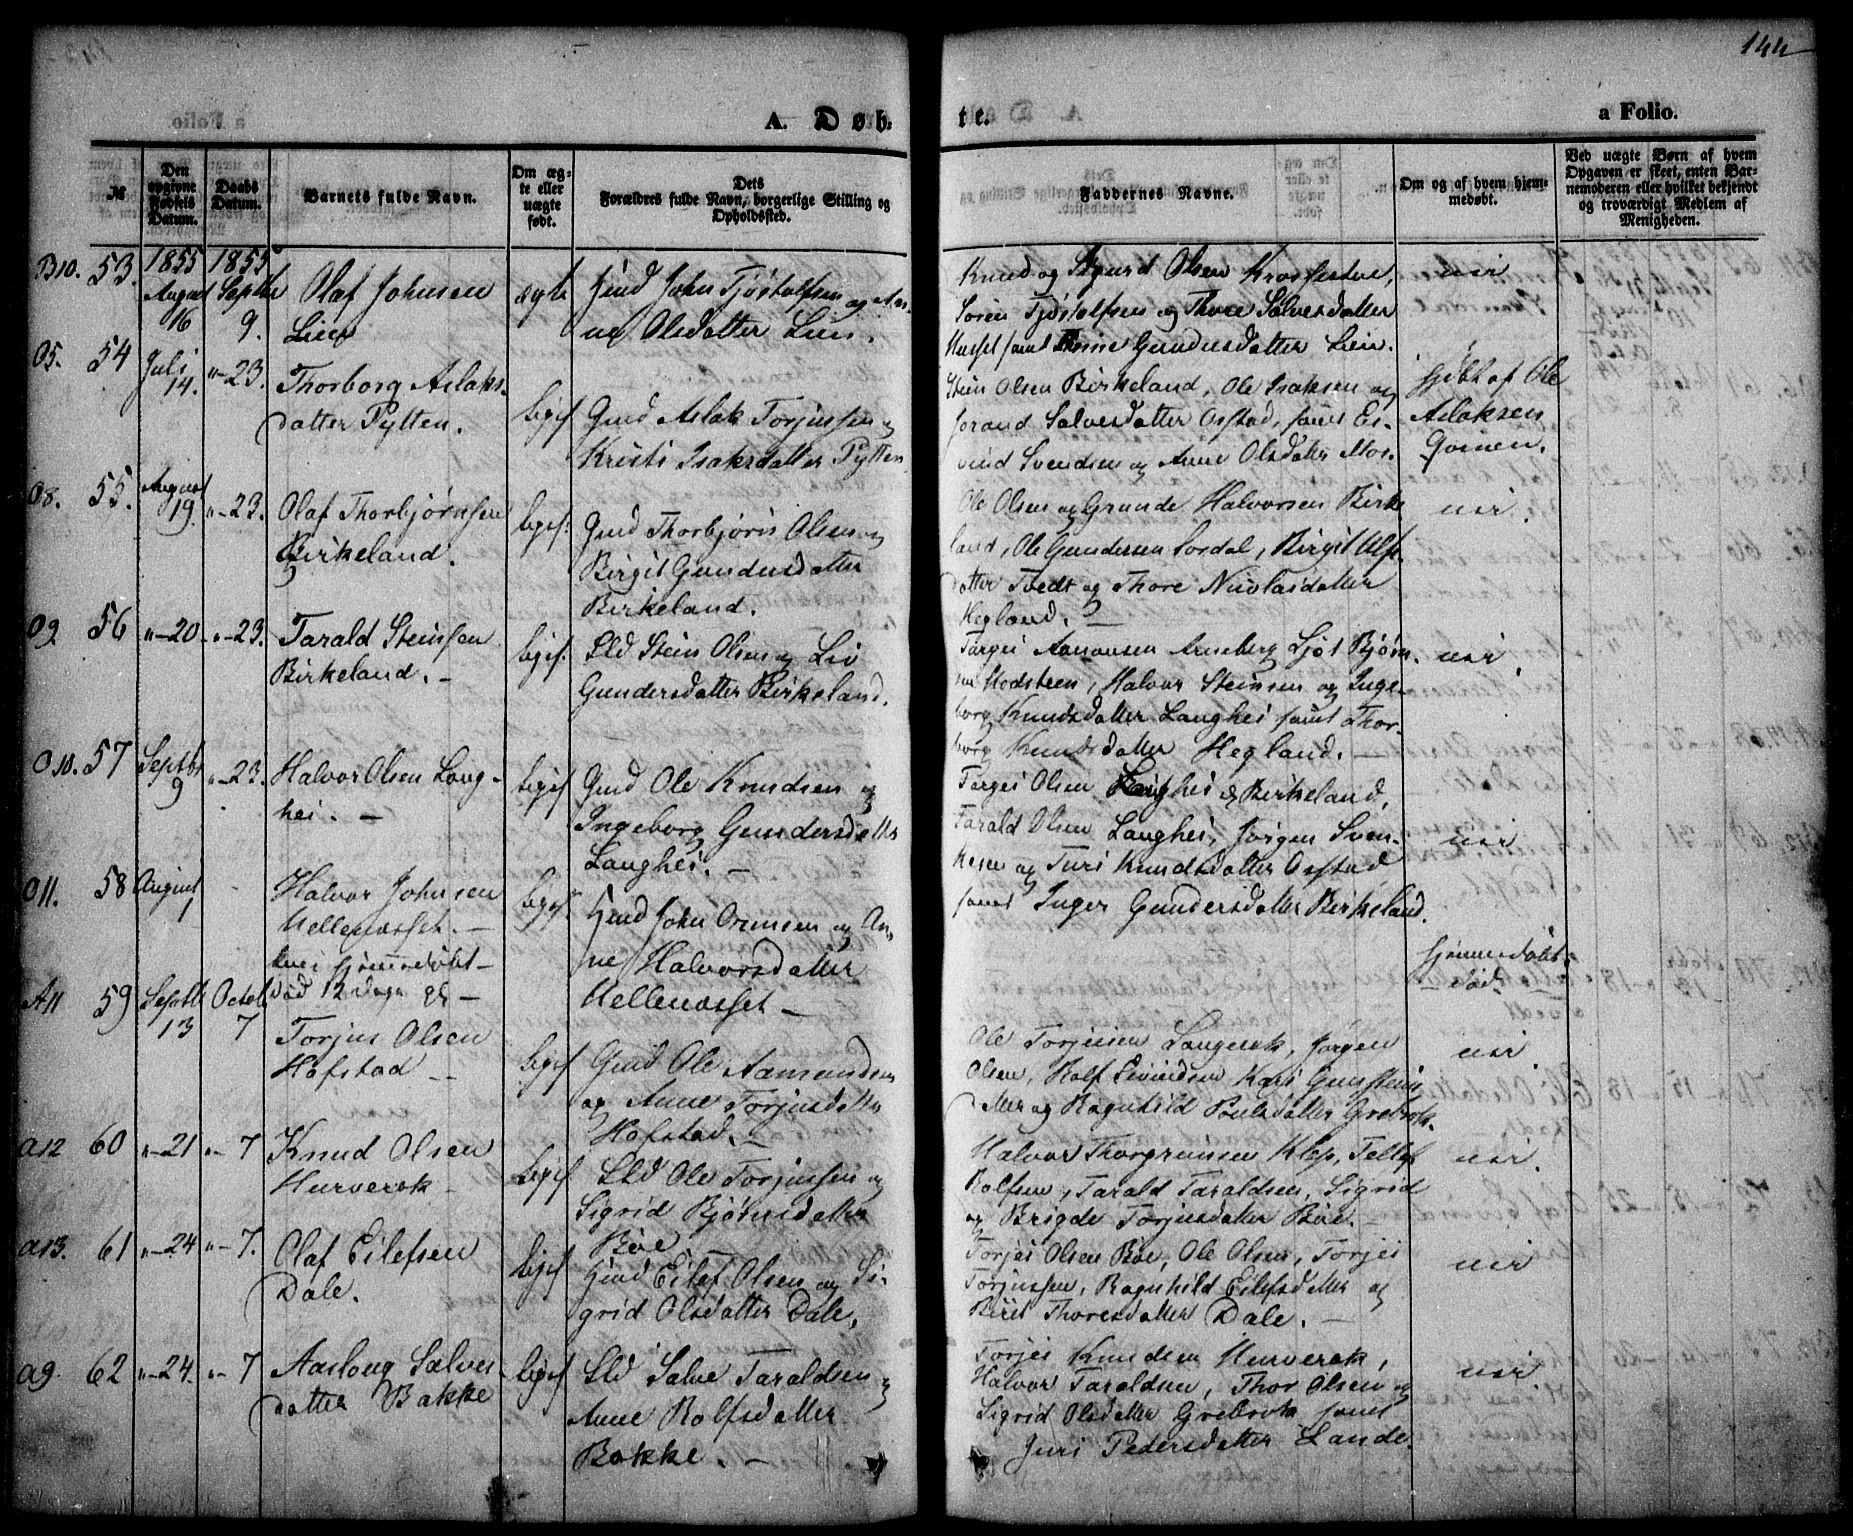 144
A. Døb-
te.
a Folio.
№
Den opgivne Fødsels Datum.
Daabs Datum.
Barnets fulde Navn.
Om ægte eller uægte født.
Dets Forældres fulde Navn, borgerlige Stilling og Opholdssted.
Faddernes Navne.
Om og af hvem hjemmedøbt.
Ved uægte Børn af hvem Opgaven er skeet, enten Barnemoderen eller hvilket bekjendt og troværdigt Medlem af Menigheden.
B10. 53. 1855 August 16
1855 Septbr 9.
Olaf Johnsen
Lien
ægte
Gmd John Tjøstolfsen og An-
ne Olsdatter Lien.
Knud og Sigurd Olsen
Søren Tjøstolfsen og Thore Salvesdatter
samt Anne Gundersdatter Lien.
nei
O5. 54 Juli 14. "-23.
Thorborg Aslaks-
datter Pytten.
legif
Gmd Aslak Torjussen og
Kristi Isaksdatter Pytten
Stein Olsen Birkeland, Ole Isaksen og
Jorand Salvesdatter Ofstad, samt Ei-
vind Svendsen og Anne Olsdatter Mos-
hjdbt af Ole
Aslaksen
O8. 55. August 19. "-23.
Olaf Thorbjørnsen
Birkeland.
legif:
Gmd Thorbjørn Olsen og
Birgit Gundersdatter
Birkeland.
Ole Olsen og Grunde Halvorsen Birke
land, Ole Gundersen Sordal, Birgit Ols-
datter Tvedt og Thore Nicolasdatter
Hegland. —
nei.
O9 56 "-20 "-23.
Tarald Steinsen
Birkeland. -
legif:
Sld Stein Olsen og Liv
Gundersdatter Birkeland.
Torgei Aanonsen Arneberg Ljøt Bjørn-
sen Modsteen, Halvor Steinsen og Inge-
borg Knudsdatter Langhei samt Thor-
borg Knudsdatter Hegland. —
nei.
O10. 57 Septbr 9 "-23.
Halvor Olsen Lang-
hei. —
legif
Gmd Ole Knudsen og
Ingeborg Gundersdatter
Langhei. —
Torgei Olsen Langhei og Birkeland,
Tarald Olsen Langhei, Jørgen Sven-
kesen og Turi Knudsdatter Ofstad
samt Inger Gundersdatter Birkeland.
nei
O11. 58 August 1
Halvor Johnsen
Uellenæsset. —
hjemmedøbt —
død 12 Dage gl —
legif.
Gmd John Ormsen og An-
ne Halvorsdatter
Uellenæsset —
hjemmedøbt
død.
A11 59 Septbr 13 Octob 7
Torjus Olsen
Hofstad —
legif
Gmd Ole Aamundsen
og Anne Torjusdatter
Hofstad. —
Ole Torjusen Langerak, Jørgen
Olsen, Rolf Eivindsen Kari Gunsteins
datter og Ragnhild Paulsdatter Grebrok.
nei
A12 60 "-21 "-7
Knud Olsen
Hurverok —
legif
Sld Ole Torjussen og
Sigrid Bjørnsdatter
Bøe
Halvor Thorgrimsen Klep, Tellef
Rolfsen, Tarald Taraldsen, Sigrid
og Brigde Torjusdatter Bøe. —
nei.
A13. 61 "-24 "-7.
Olaf Eilefsen
Dale.
legif
Gmd Eilef Olsen og Si-
grid Olsdatter Dale,
Torjei Olsen Bøe, Ole Olsen, Torjei
Torjussen, Ragnhild Eilefsdatter og
Birit Thoresdatter Dale. —
nei
A9. 62 "-24. "-7
Aaslaug Salves
datter Bakke
legif
Sld Salve Taraldsen og
Anne Rolfsdatter
Bakke. —
Torjei Knudsen Hurverok,
Halvor Taraldsen, Thor Olsen og
Sigrid Olsdatter Grebrok samt
Juri Pedersdatter Lande.
nei